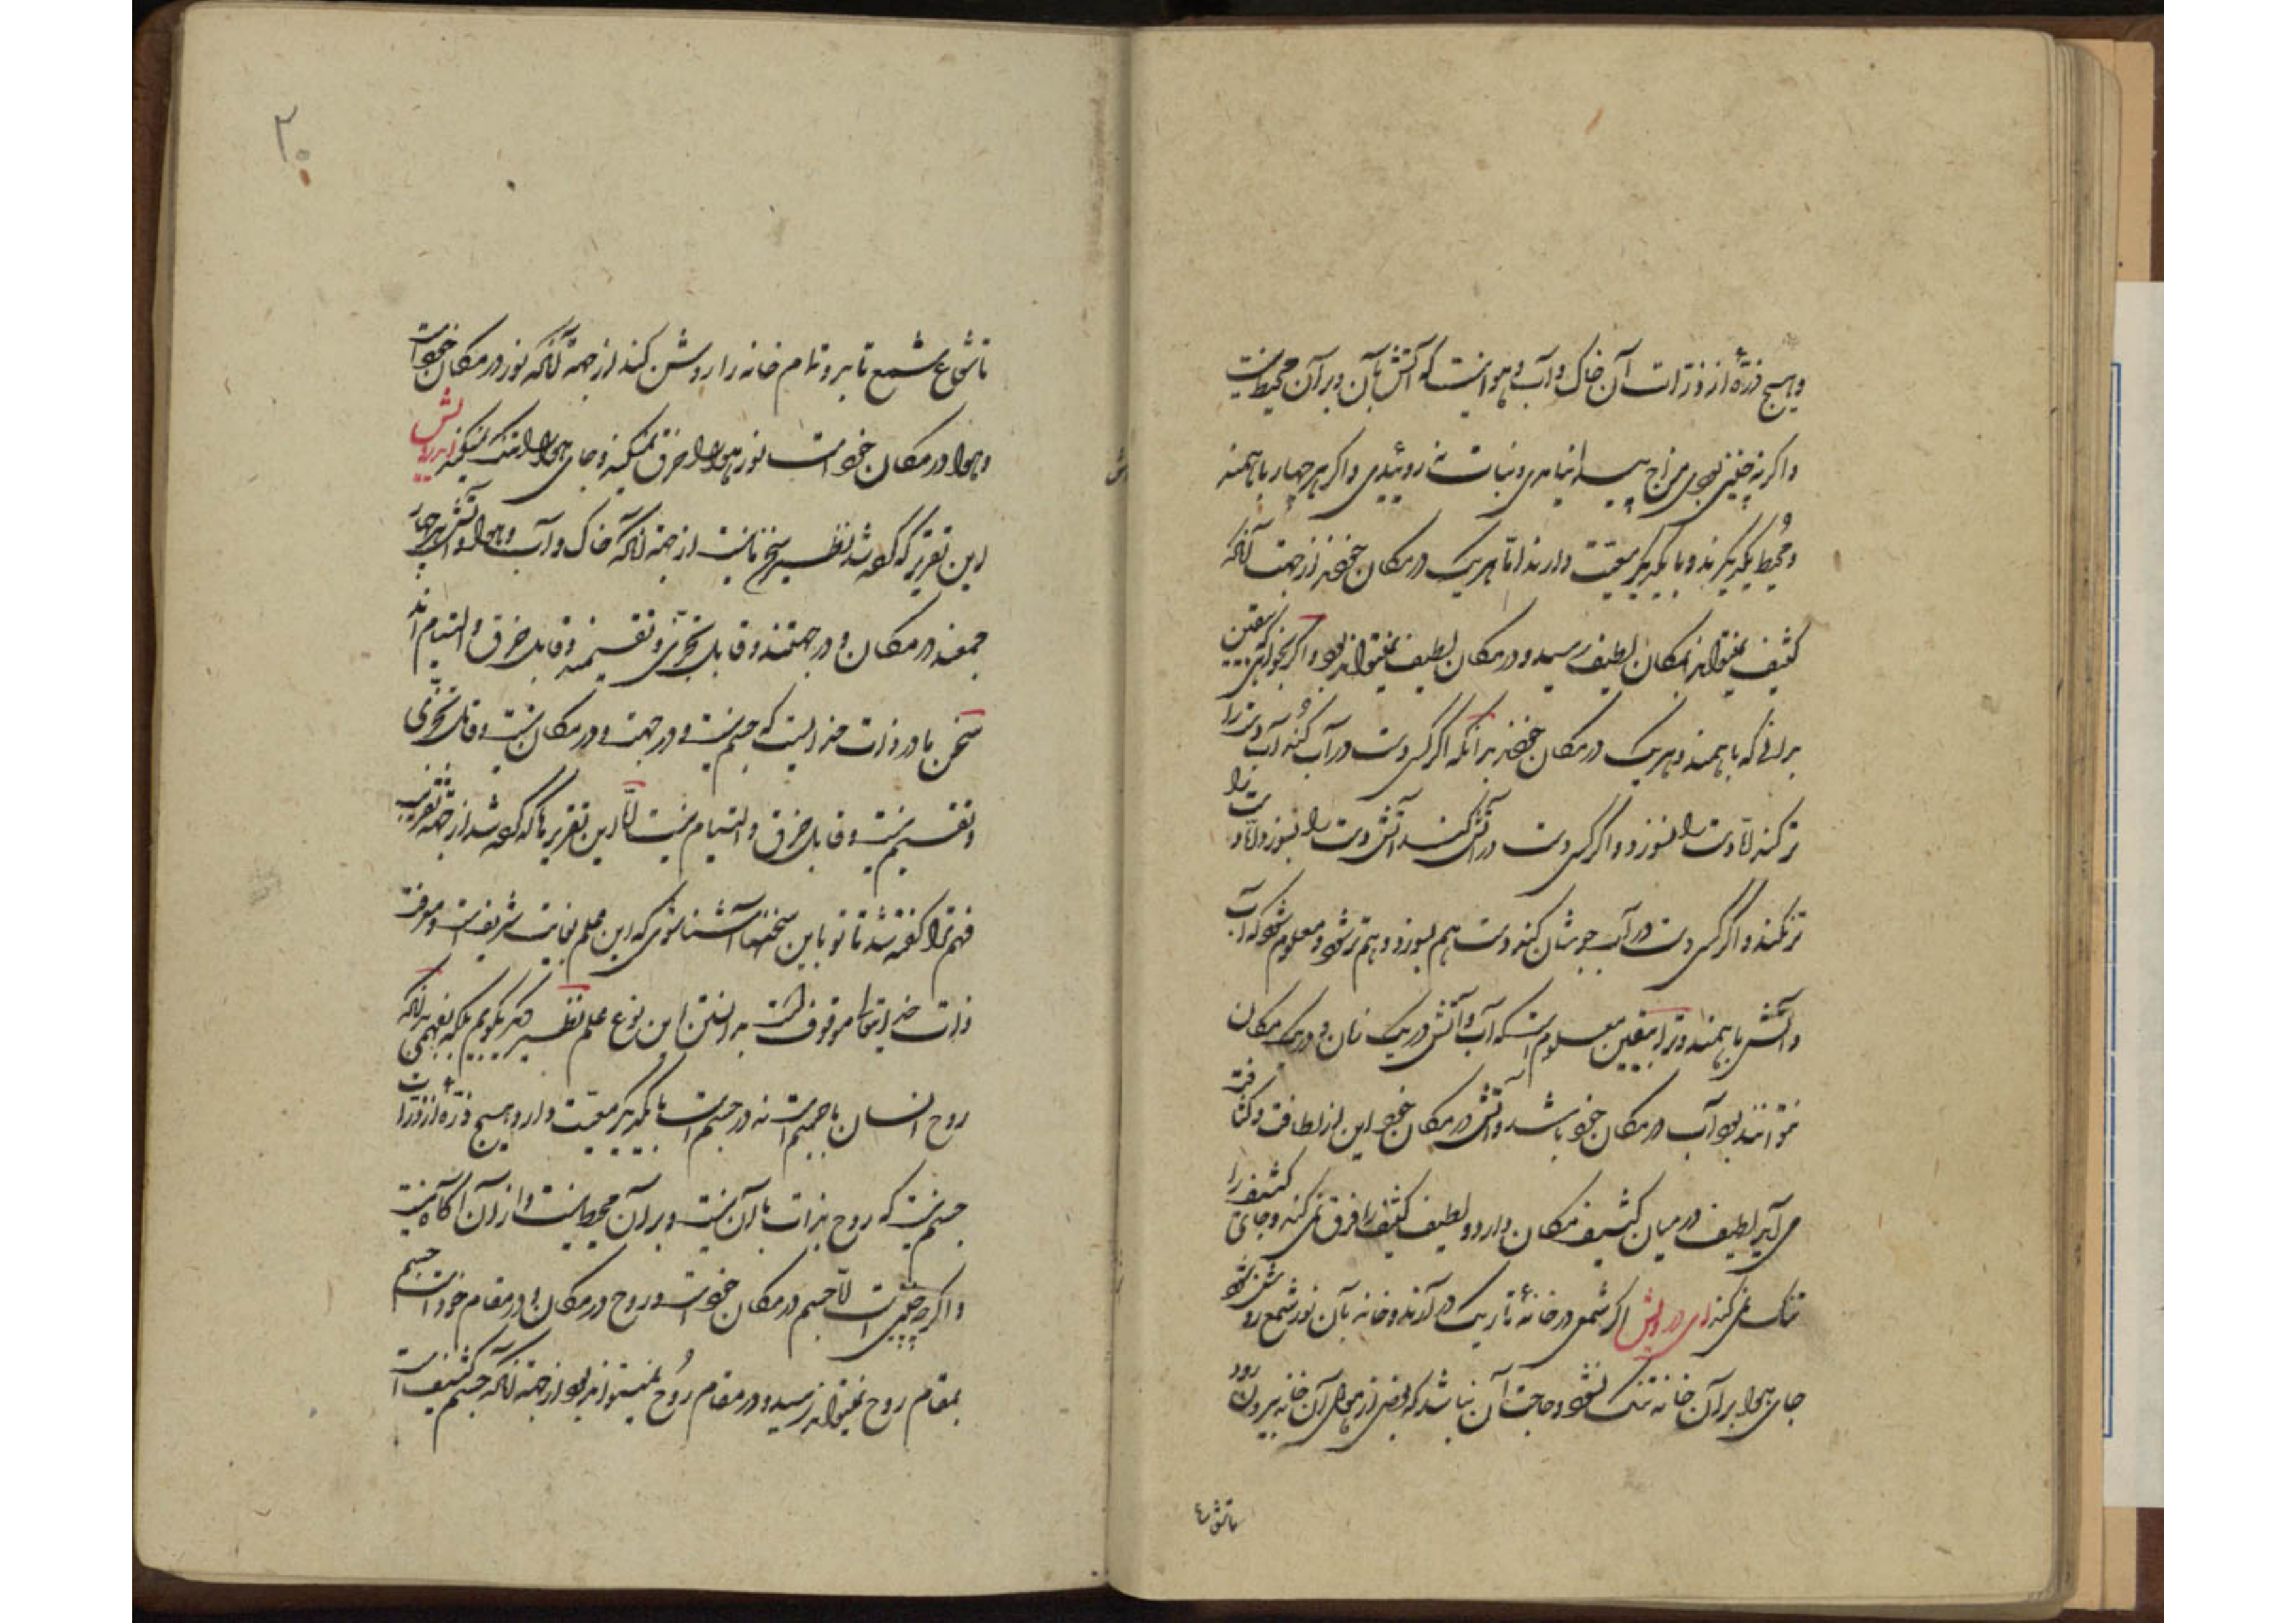 و هیچ ذرّهٔ از ذرّات آن خاک و آب و هوا نیست که آتش بآن و بر آن محیط نیست
و اکر نه چنین بودی مزاج پیدا نیامدی و نبات نه روئیدی و اکر هر چهار با همند
و محیط یکدیکرند و با یکدیکر معیّت دارند امّا هریک در مکان خودند از جهت آنکه
کثیف نمیتواند بمکان لطیف رسید و در مکان لطیف نمیتواند بود و اکر بخواهی بیقین
بدانی که با همند و هریک در مکان خودند بدانکه اکر کسی دست در آب کند آب دست را
تر کند لا دست را نسوزد و اکر کسی دست در آتش کند آتش دست را بسوزد و لا دست را
تر نکند و اکر کسی دست در آب جوشان کند دست هم بسوزد و هم تر شود و معلوم شود که آب
و آتش با همند و ترا بیقین معلوم است که آب و آتش در یک زمان و در یک مکان
نتوانند بود آب در مکان خود باشد و آتش در مکان خود این از لطافت و کثافت
می آید لطیف در میان کثیف مکان دارد و لطیف کثیف را خرق نمی کند و جای کثیف را
تنک نمی کند ای درویش اکر شمعی در خانهٔ تاریک در آرند و خانه بآن نور شمع روشن شود
جای هوا بر آن خانه تنک نشود و حاجت آن نباشد که بعضی از هوای آن خانه بیرون رود
تا شعاع
۳۰
تا شعاع شمع تابد و تمام خانه را روشن کند از جهة آنکه نور در مکان خود است
و هوا در مکان خود است نور هوا را خرق نمیکند و جای هوا را تنک نمیکند ای درویش
این تقریر که کفته شد نظیر سخن ما نیست از جهة آنکه خاک و آب و هوا و آتش هر چهار
جمعند در مکان و در جهتند و قابل تجزّی و تقسیمند و قابل خرق و التیام اند
سخن ما در ذات خدایست که جسم نیست و در جهت و در مکان نیست و قابل تجزّی
و تقسیم نیست و قابل خرق و التیام نیست لّا این تقریر ها که کفته شد از جهة تقریب
فهم ترا کفته شد تا تو باین سخنها آشنا شوی که این علم بغایت شریف است و معرفت
ذات خدایتعالی موقوف است بدانستن این نوع علم نظیر دیکر بکویم بلکه بفهمی بدانکه
روح انسان با جسم است نه در جسم است با یکدیکر معیّت دارد و هیچ ذرّهٔ از ذرّات
جسم نیست که روح بذات با آن نیست و بر آن محیط نیست و از آن آکاه نیست
و اکرچه چنین است لّا جسم در مکان خود است و روح در مکان و در مقام خود است جسم
بمقام روح نمیتواند رسید و در مقام روح نمیتواند بود از جهة آنکه جسم کثیف است